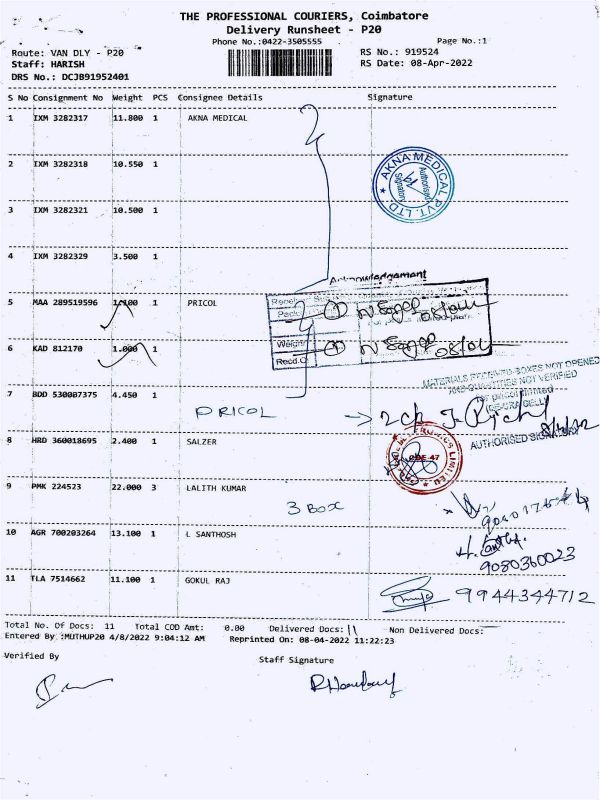 THE PROFESSIONAL COURIERS, Coimbatore
Delivery Runsheet - P20
Phone No.:0422-3505555 Page No.:1
Route: VAN DLY - P20 RS No.: 919524
Staff: HARISH RS Date: 08-Apr-2022
DRS No.: DCJB91952401
S No Consignment No Weight PCS Consignee Details Signature
1 IXM 3282317 11.800 1 AKNA MEDICAL
2 IXM 3282318 10.550 1
AKNA MEDICAL PVT. LTD.
Authorised Signatory
3 IXM 3282321 10.500 1
4 IXM 3282329 3.500 1
Acknowledgement
5 MAA 289519596 1.100 1 PRICOL
Weight
6 KAD 812170 1.000 1
MATERIALS RECEIVED BOXES NOT OPENED
AND QUANTITIES NOT VERIFIED
7 BDD 530007375 4.450 1
PRICOL
AUTHORISED SIGNATORY
8 HRD 360018695 2.400 1 SALZER
9 PMK 224523 22.000 3 LALITH KUMAR
3 BOX
10 AGR 700203264 13.100 1 L SANTHOSH
9080360023
11 TLA 7514662 11.100 1 GOKUL RAJ
9944344712
Total No. Of Docs: 11 Total COD Amt: 0.00 Delivered Docs: 11 Non Delivered Docs:
Entered By :MUTHUP20 4/8/2022 9:04:12 AM Reprinted On: 08-04-2022 11:22:23
Verified By Staff Signature